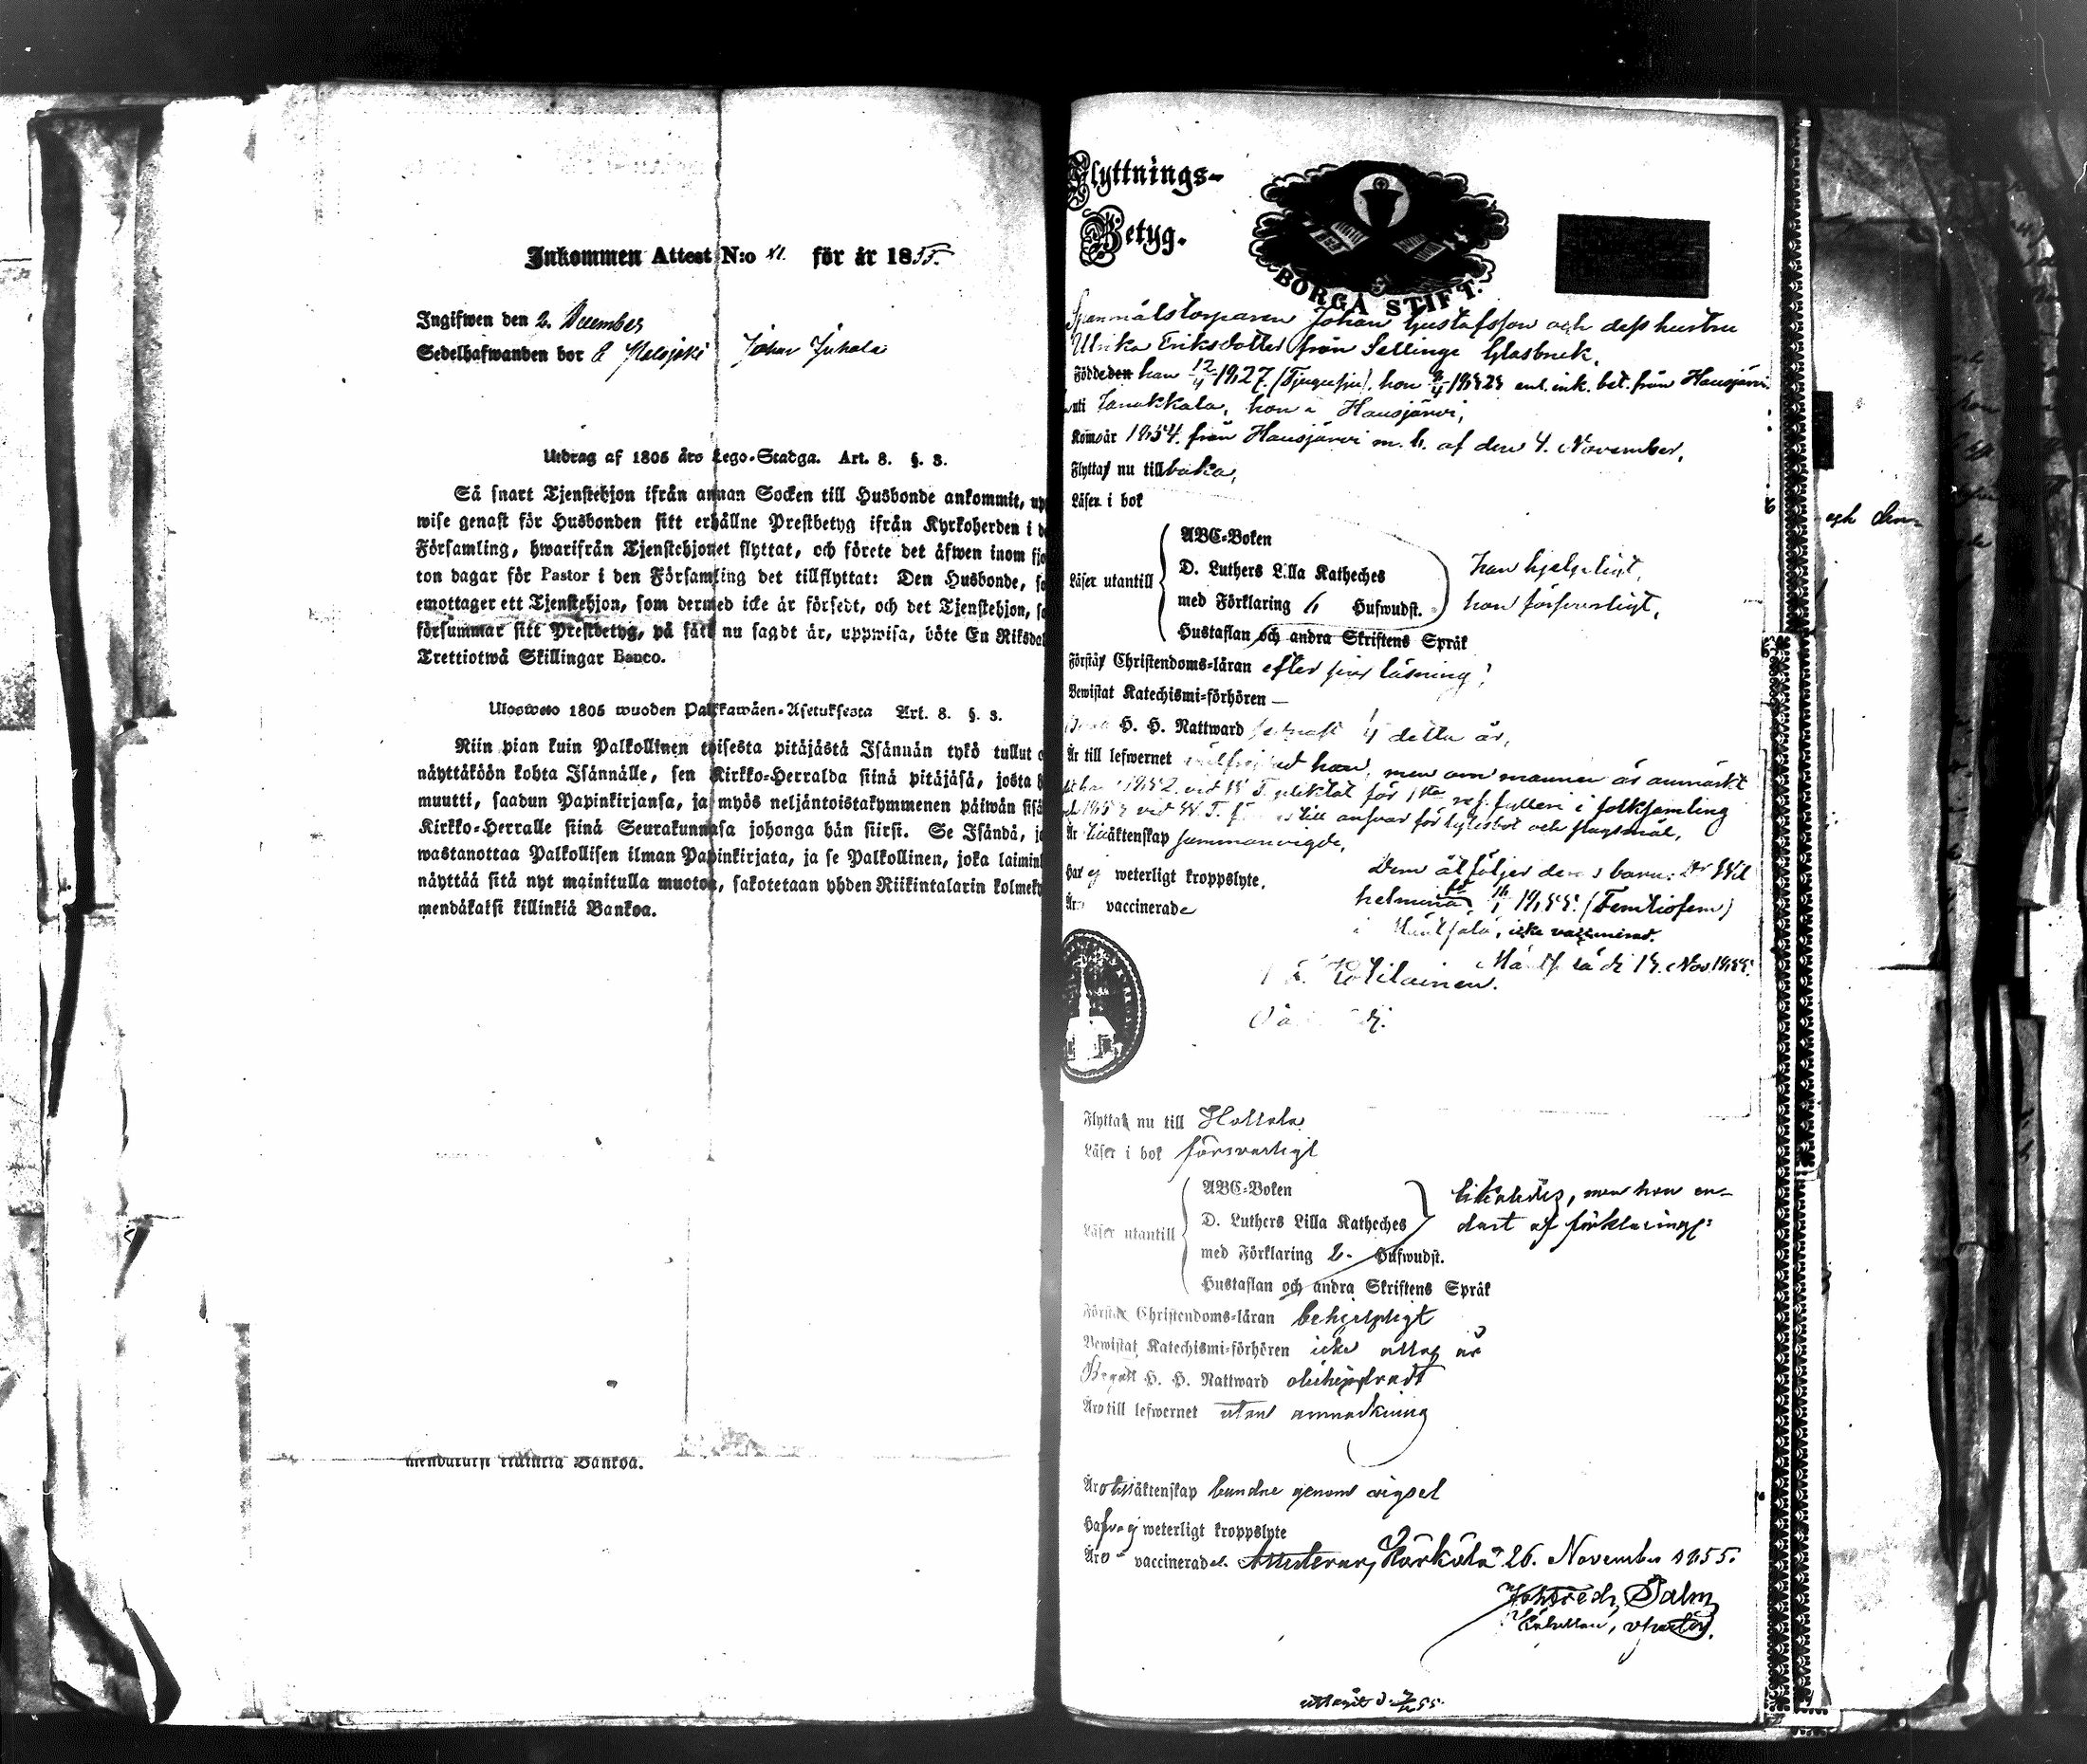 Inkommen Attest N:o XI. för år 1855.
Ingifwen den 2. December
Sedelhafwanden bor Johan Juhala
Utdrag af 1805 års Lego-Stadga. Art. 8. §. 3.
Så snart Tjenstehjon ifrån annan Socken till Husbonde ankommit, upp
wise genast för Husbonden sitt erhållne Prestbetyg ifrån Kyrkoherden i d
Församling, hwarifrån Tjenstehjonet flyttat, och förete det äfwen inom fjo
ton dagar för Pastor i den Församling det tillflyttat: Den Husbonde, so
emottager ett Tjenstehjon, som dermed icke är försedt, och det Tjenstehjon, so
försummar sitt Prestbetyg, på sätt nu sagdt är, uppwisa, böte En Riksdal
Trettiotwå Skillingar Banco.
Ulosweto 1805 wuoden Palkkawäen-Asetuksesta Art. 8. §. 3.
Niin pian kuin Palkollinen toisesta pitäjästä Isännän tykö tullut o
näyttäköön kohta Isännälle, sen Kirkko-Herralda siinä pitäjäsä, josta h
muutti, saadun Papinkirjansa, ja myös neljäntoistakymmenen päiwän sisä
Kirkko-Herralle siinä Seurakunnasa johonga hän siirsi. Se Isändä, jo
wastanottaa Palkollisen ilman Papinkirjata, ja se Palkollinen, joka laimin
näyttää sitä nyt mainitulla muoton, sakotetaan yhden Riikintalarin kolmeky
mendäkaksi killinkiä Bankoa.
Bankoa.
Flyttnings-
Betyg.
BORGÅ STIFT.
Spanmålstorparen Johan Gustafsson och dess hustru
Ulrika Eriksdotter från Sellinge Glasbruk.
Födde den han 12/4 1827. (Tjugusju). hon 1828 enl. ink. bet. från Hausjärvi
uti Janakkala, hon i Hausjärvi,
Kom år 1854. från Hausjärvi m. b. af den 4. November,
Flytta nu till baka,
Läser i bok
Läser utantill
ABC-Boken
D. Luthers Lilla Katheches
med Förklaring 6 Hufwudst.
Hustaflan och andra Skriftens Språk
han hjelpligt,
hon försvarligt,
Förstå Christendoms-läran efter sin läsning;
Bewistat Katechismi-förhören —
H. H. Nattward detta år,
Är till lefwernet han, men om mannen är anmärkt
1852. vid W. T. pliktat för 1sta fylleri i folksamling
vid W. T. till ansvar för och slagsmål,
Är till äktenskap sammanvigde,
Har ej weterligt kroppslyte.
Äro vaccinerade
Dem åtföljer deras barn: Dr Wil
helmina född 1855. (Femtiofem)
i Mäntsälä, icke vaccinerad.
Mäntsälä d. 18. Nov 1855.
Kotilainen.
Flytta nu till Hollola
Läser i bok försvarligt
Läser utantill
ABC-Boken
D. Luthers Lilla Katheches
med Förklaring 2. Hufwudst.
Hustaflan och andra Skriftens Språk
likaledes, men hon en-
dast af förklaring:
Förstå Christendoms-läran behjelpligt
Bewistat Katechismi-förhören icke i år
Begått H. H. Nattward
Äro till lefwernet utan anmärkning
Äro till äktenskap bundne genom vigsel
Hafva ej weterligt kroppslyte
Äro vaccinerade. Attesterar, Kärkölä 26. November 1855.
Joh Fredr. Palm